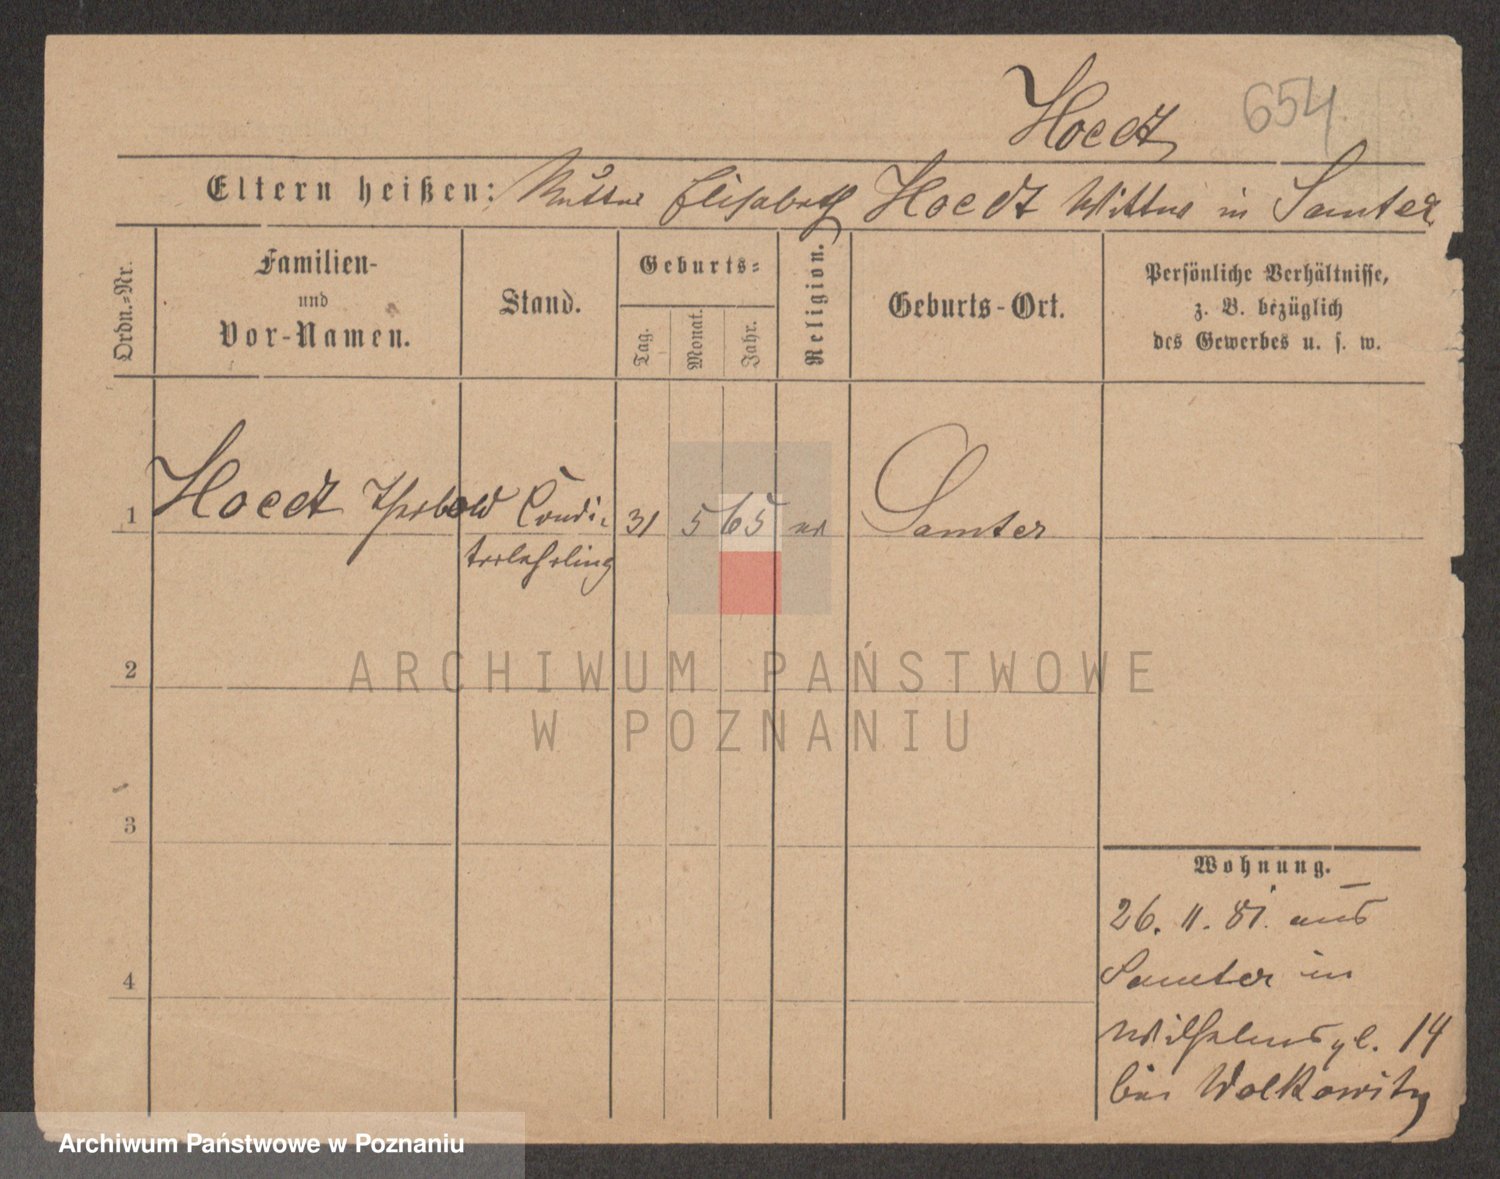 Hoedt 654
Eltern heißen: Mutter Elisabeth Hoedt Wittwe in Samter
Ordn.=Nr.
Familien-
und
Vor-Namen.
Stand.
Geburts=
Tag.
Monat.
Jahr.
Religion.
Geburts-Ort.
Persönliche Verhältnisse,
z. B. bezüglich
des Gewerbes u. s. w.
1 Hoedt Condi- 31 5 65 Samter
torlehrling
ARCHIWUM PAŃSTWOWE
W POZNANIU
2
3
4
Wohnung.
26. 11. 81. aus
Samter in
Wilhelmspl. 14
bei Wolkowitz
Archiwum Państwowe w Poznaniu